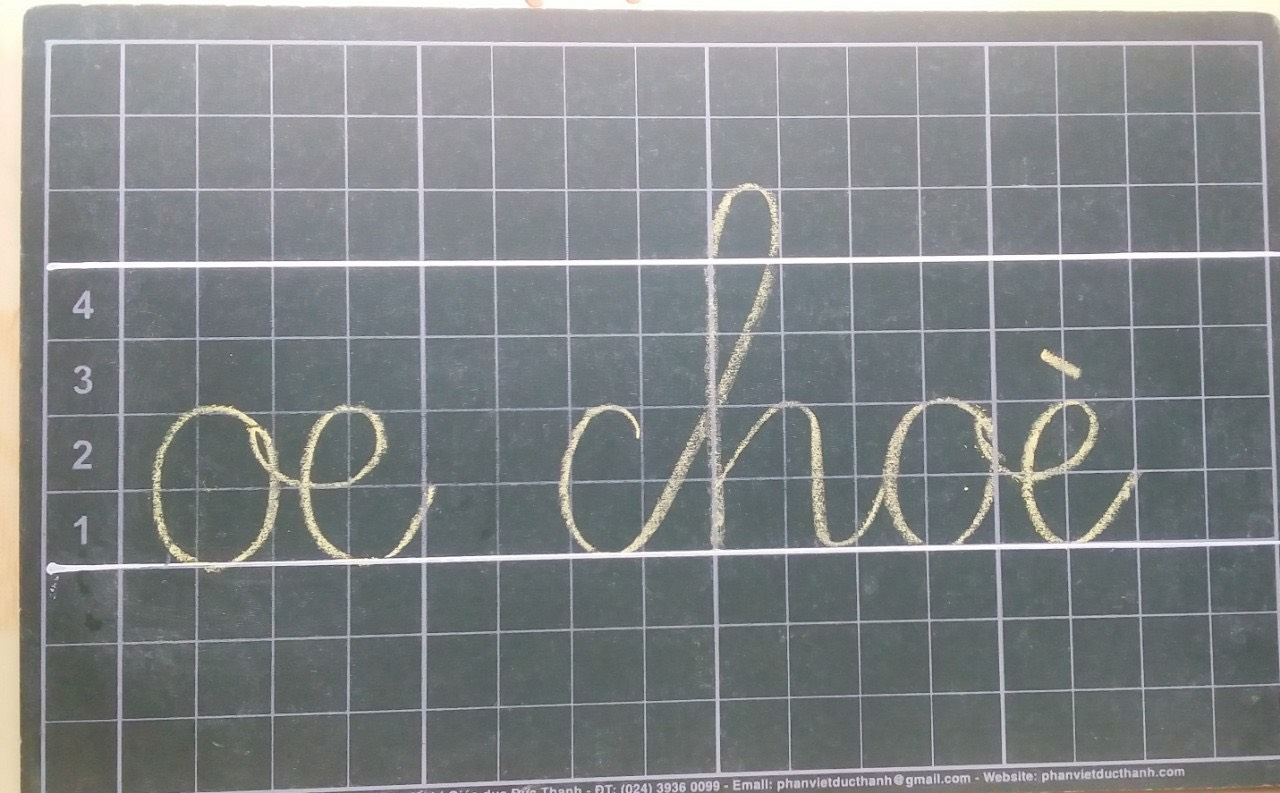 4
3
2
1
oe choè
Giáo dục Đức Thanh - ĐT: (024) 3936 0099 - Email: phanvietducthanh@gmail.com - Website: phanvietducthanh.com